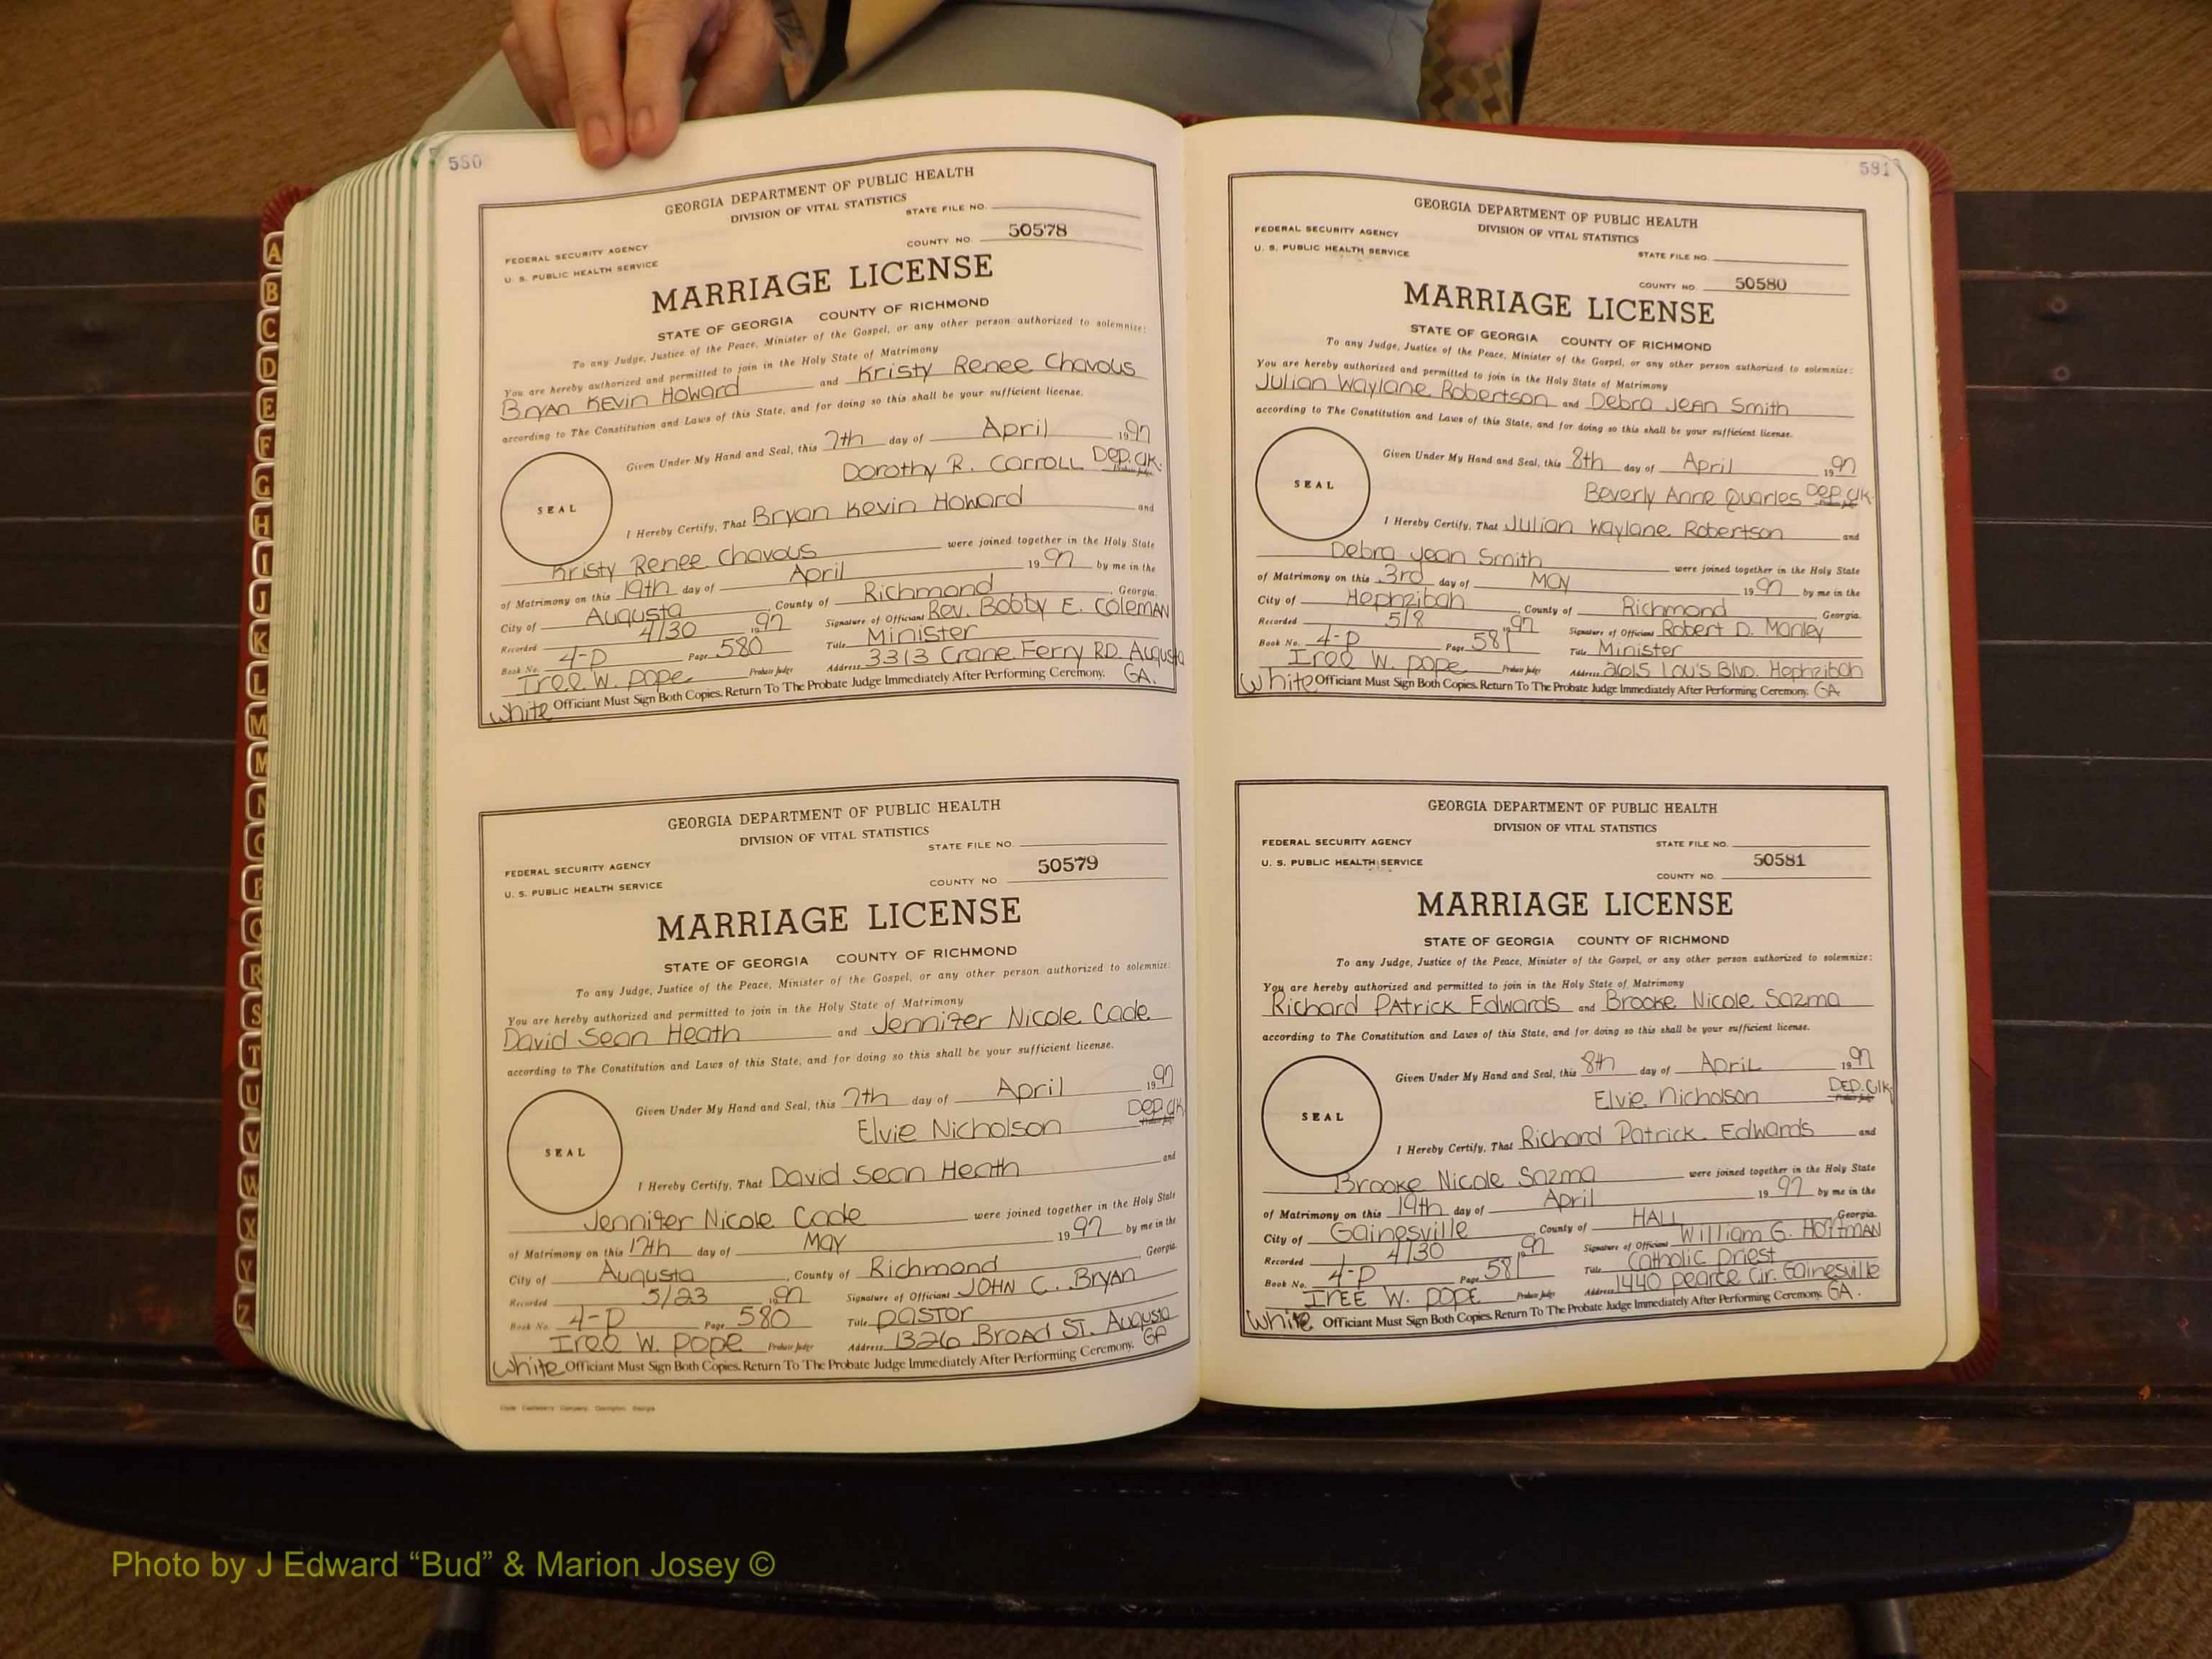 580
GEORGIA DEPARTMENT OF PUBLIC HEALTH
DIVISION OF VITAL STATISTICS
STATE FILE NO.
FEDERAL SECURITY AGENCY
COUNTY NO. 50578
U. S. PUBLIC HEALTH SERVICE
MARRIAGE LICENSE
STATE OF GEORGIA COUNTY OF RICHMOND
To any Judge, Justice of the Peace, Minister of the Gospel, or any other person authorized to solemnize:
You are hereby authorized and permitted to join in the Holy State of Matrimony
Bryan Kevin Howard and Kristy Renee Chavous
according to The Constitution and Laws of this State, and for doing so this shall be your sufficient license.
Given Under My Hand and Seal, this 7th day of April 1997
Dorothy R. Carroll Dep. Clk.
Probate Judge
SEAL
I Hereby Certify, That Bryan Kevin Howard and
Kristy Renee Chavous were joined together in the Holy State
of Matrimony on this 19th day of April 1997 by me in the
City of Augusta, County of Richmond, Georgia.
Recorded 4/30 1997 Signature of Officiant Rev. Bobby E. Coleman
Book No. 4-P Page 580 Title Minister
Iree W. Pope Probate Judge Address 3313 Crane Ferry RD. Augusta
White Officiant Must Sign Both Copies. Return To The Probate Judge Immediately After Performing Ceremony. GA.
GEORGIA DEPARTMENT OF PUBLIC HEALTH
DIVISION OF VITAL STATISTICS
STATE FILE NO.
FEDERAL SECURITY AGENCY
COUNTY NO 50579
U. S. PUBLIC HEALTH SERVICE
MARRIAGE LICENSE
STATE OF GEORGIA COUNTY OF RICHMOND
To any Judge, Justice of the Peace, Minister of the Gospel, or any other person authorized to solemnize:
You are hereby authorized and permitted to join in the Holy State of Matrimony
David Sean Heath and Jennifer Nicole Cade
according to The Constitution and Laws of this State, and for doing so this shall be your sufficient license.
Given Under My Hand and Seal, this 7th day of April 1997
Elvie Nicholson Dep. Clk
Probate Judge
SEAL
I Hereby Certify, That David Sean Heath and
Jennifer Nicole Cade were joined together in the Holy State
of Matrimony on this 17th day of May 1997 by me in the
City of Augusta, County of Richmond, Georgia.
Recorded 5/23 1997 Signature of Officiant JOHN C. Bryan
Book No. 4-P Page 580 Title Pastor
Iree W. Pope Probate Judge Address 1326 Broad ST. Augusta
White Officiant Must Sign Both Copies. Return To The Probate Judge Immediately After Performing Ceremony. GA
581
GEORGIA DEPARTMENT OF PUBLIC HEALTH
DIVISION OF VITAL STATISTICS
FEDERAL SECURITY AGENCY
STATE FILE NO.
U. S. PUBLIC HEALTH SERVICE
COUNTY NO. 50580
MARRIAGE LICENSE
STATE OF GEORGIA COUNTY OF RICHMOND
To any Judge, Justice of the Peace, Minister of the Gospel, or any other person authorized to solemnize:
You are hereby authorized and permitted to join in the Holy State of Matrimony
Julian Waylane Robertson and Debra Jean Smith
according to The Constitution and Laws of this State, and for doing so this shall be your sufficient license.
Given Under My Hand and Seal, this 8th day of April 1997
Beverly Anne Quarles Dep. Clk.
SEAL
I Hereby Certify, That Julian Waylane Robertson and
Debra Jean Smith were joined together in the Holy State
of Matrimony on this 3rd day of May 1997 by me in the
City of Hephzibah, County of Richmond, Georgia.
Recorded 5/8 1997 Signature of Officiant Robert D. Manley
Book No. 4-P Page 581 Title Minister
Iree W. Pope Probate Judge Address 2615 Lou's Blvd. Hephzibah
White Officiant Must Sign Both Copies. Return To The Probate Judge Immediately After Performing Ceremony. GA
GEORGIA DEPARTMENT OF PUBLIC HEALTH
DIVISION OF VITAL STATISTICS
FEDERAL SECURITY AGENCY
STATE FILE NO.
U. S. PUBLIC HEALTH SERVICE
COUNTY NO. 50581
MARRIAGE LICENSE
STATE OF GEORGIA COUNTY OF RICHMOND
To any Judge, Justice of the Peace, Minister of the Gospel, or any other person authorized to solemnize:
You are hereby authorized and permitted to join in the Holy State of Matrimony
Richard Patrick Edwards and Brooke Nicole Sazma
according to The Constitution and Laws of this State, and for doing so this shall be your sufficient license.
Given Under My Hand and Seal, this 8th day of April 1997
Elvie Nicholson DEP. Clk.
Probate Judge
SEAL
I Hereby Certify, That Richard Patrick Edwards and
Brooke Nicole Sazma were joined together in the Holy State
of Matrimony on this 19th day of April 1997 by me in the
City of Gainesville, County of HALL, Georgia.
Recorded 4/30 1997 Signature of Officiant William G. Hoffman
Book No. 4-P Page 581 Title Catholic Priest
IREE W. POPE Probate Judge Address 1440 Pearce Cir. Gainesville
White Officiant Must Sign Both Copies. Return To The Probate Judge Immediately After Performing Ceremony. GA.
A
B
C
D
E
F
G
H
I
J
K
L
M
M
N
O
P
Q
R
S
T
U
V
W
X
Y
Z
Photo by J Edward “Bud” & Marion Josey ©